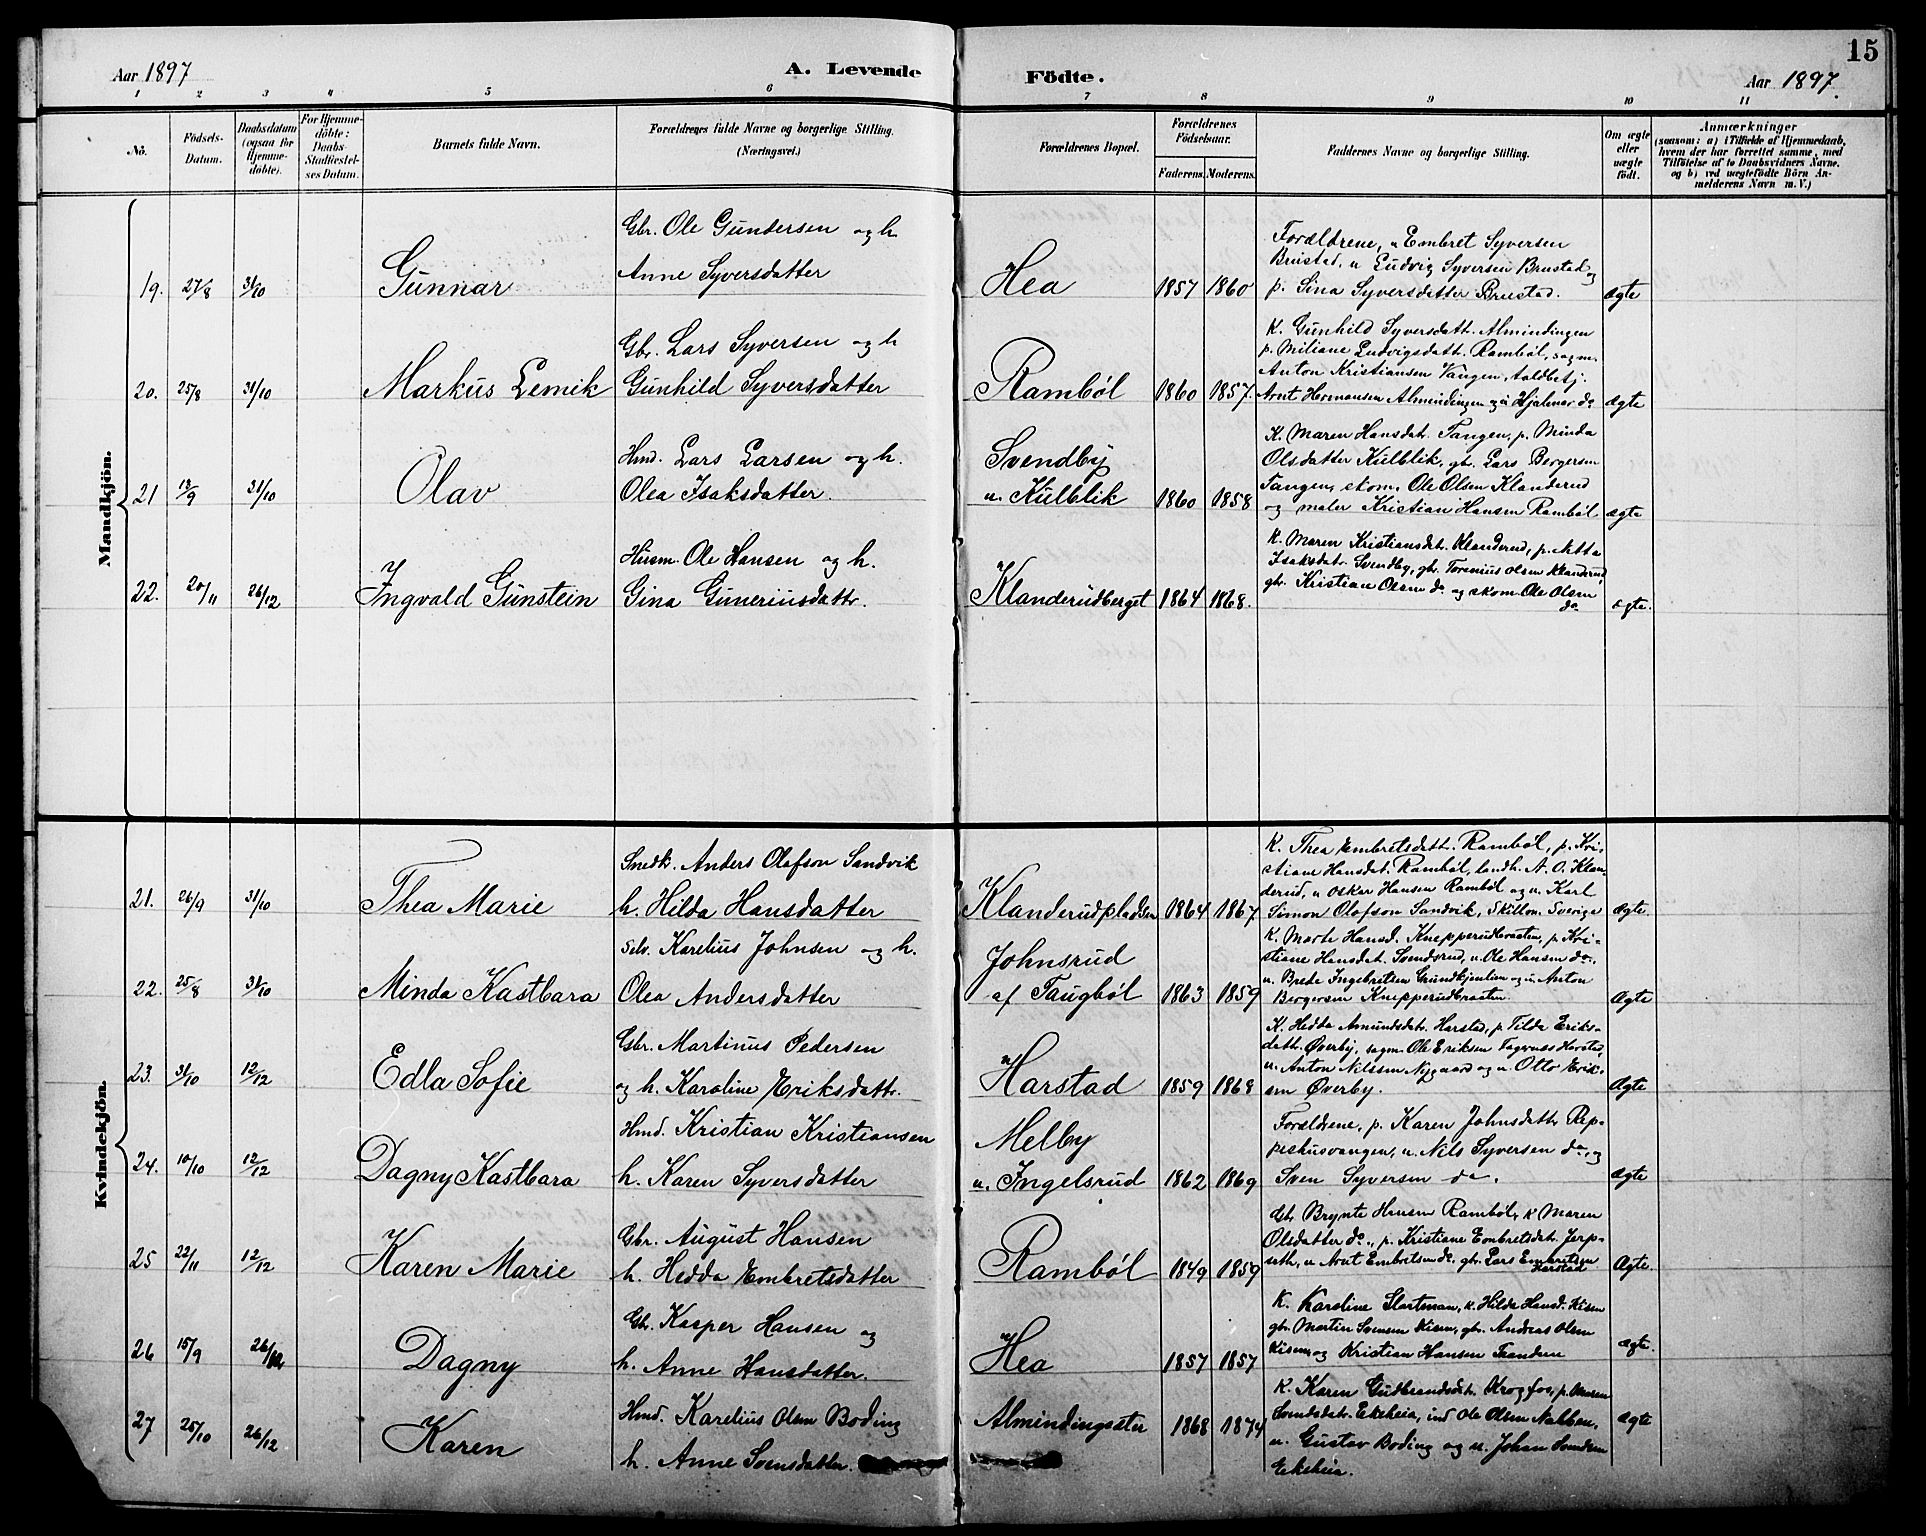 15
Aar 1897
A. Levende
Födte.
Aar 1897.
1 2 3 4 5 6 7 8 9 10 11
No.
Födsels-Datum.
Daabsdatum (ogsaa for Hjemme-döbte).
For Hjemme-döbte: Daabs-Stadfæstel-ses Datum.
Barnets fulde Navn.
Forældrenes fulde Navne og borgerlige Stilling. (Næringsvei.)
Forældrenes Bopæl.
Forældrenes Födselsaar.
Faderens. Moderens.
Faddernes Navne og borgerlige Stilling.
Om ægte eller uægte födt.
Anmærkninger
(saasom: a) i Tilfælde af Hjemmedaab,
hvem der har forrettet samme, med
Tilföielse af to Daabsvidners Navne,
og b) ved uægtefödte Börn An-
melderens Navn m. V.)
Mandkjön.
19. 27/8 31/10 Gunnar
Gbr. Ole Gundersen og h.
Anne Syversdatter
Hea 1857 1860
Forældrene, u Embret Syversen
Brustad, u Ludvig Syversen Brustad og
p. Sina Syversdatter Brustad.
ægte
20. 25/8 31/10 Markus Lemik
Gbr. Lars Syversen og h
Gunhild Syversdatter
Rambøl 1860 1857.
K. Gunhild Syversdatt. Almindingen
p. Miliane Ludvigsdatt. Rambøl, sagm.
Anton Kristiansen Vangen,
Arnt Hermansen Almindingen og u Hjalmar do
ægte
21 13/9 31/10 Olav
Hmd. Lars Larsen og h.
Olea Isaksdatter.
Svendby
u. Kulblik 1860 1858
K. Maren Hansdatr. Tangen, p. Minda
Olsdatter Kulblik, gb. Lars Bergersen
Tangen, skom. Ole Olsen Klanderud
og maler Kristian Hansen Rambøl
ægte
22. 20/11 26/12 Ingvald Gunstein
Husm. Ole Hansen og h.
Gina Guneriusdattr.
Klanderudberget 1864 1868.
K. Maren Kristiansdt. Klanderud, p. Netta
Isaksdatr. Svendby, gbr. Torenius Olsen Klanderud,
gbr. Kristian Olsen do og skom. Ole Olsen
do
ægte.
Kvindekjön.
21. 26/9 31/10 Thea Marie
Snedk. Anders Olafson Sandvik
h. Hilda Hansdatter
Klanderudpladsen 1864 1867
K. Thea Embretsdatt. Rambøl, p. Kri-
stiane Hansdat. Rambøl, landh. A. O. Klan
derud, u Oskar Hansen Rambøl og u. Karl
Simon Olafson Sandvik, Skillon. Sverige
ægte.
22. 25/8 31/10 Minda Kastbara
Selv. Karelius Johnsen og h.
Olea Andersdatter
Johnsrud
af Taugbøl 1863 1859
K. Marte Hansd. Knepperudbraaten, p. Kri-
stiane Hansdat. Svendsrud, u. Ole Hansen do.,
u. Brede Ingebretsen Grundkjenlien og u. Anton
Bergersen Knepperudbraaten.
Ægte
23. 31/10 12/12 Edla Sofie
Gbr. Martinus Pedersen
og h. Karoline Eriksdattr.
Harstad 1859 1868
K. Hedda Amundsdatr. Harstad, p Tilda Eriks-
datt. Øverby, sagm. Ole Eriksen Harstad,
u. Anton Nilssen Nygaard og u. Otto Erik-
sen Øverby.
Ægte
24. 10/10 12/12 Dagny Kastbara
Hmd. Kristian Kristiansen
h. Karen Syversdatter
Melby
u. Ingelsrud 1862 1869
Forældrene, p. Karen Johnsdattr. Rep-
peshusvangen, u. Nils Syversen do., og
Sven Syversen do.
ægte
25 22/11 12/12 Karen Marie
Gbr. August Hansen
h. Hedda Embretsdatter
Rambøl 1849 1859
Gb. Brynte Hansen Rambøl, k Maren
Olsdatter do., p. Kristiane Embretsdat. Jerp-
seth, u Arnt Embretsen do. gbr. Lars Embretsen
Harstad
Ægte.
26 15/9 26/12 Dagny
Gbr. Kasper Hansen og
h. Anne Hansdatter.
Hea 1857 1857
K. Karoline Slartman, k. Hilda Hansd. Kisen
gbr. Martin Svensen Kisen, gbr. Andreas Olsen
Kisen og Kristian Hansen Trandem
ægte.
27 25/10 26/12 Karen
Hmd. Karelius Olsen Boding
h. Anne Svensdatter.
Almindingseter 1868 1874
K. Karen Gudbrandsdt. Krogfos, p. Maren
Svendsdatr. Ekeheia, ind Ole Olsen Nabben,
u. Gustav Boding og u. Johan Svendsen
Ekeheia.
ægte